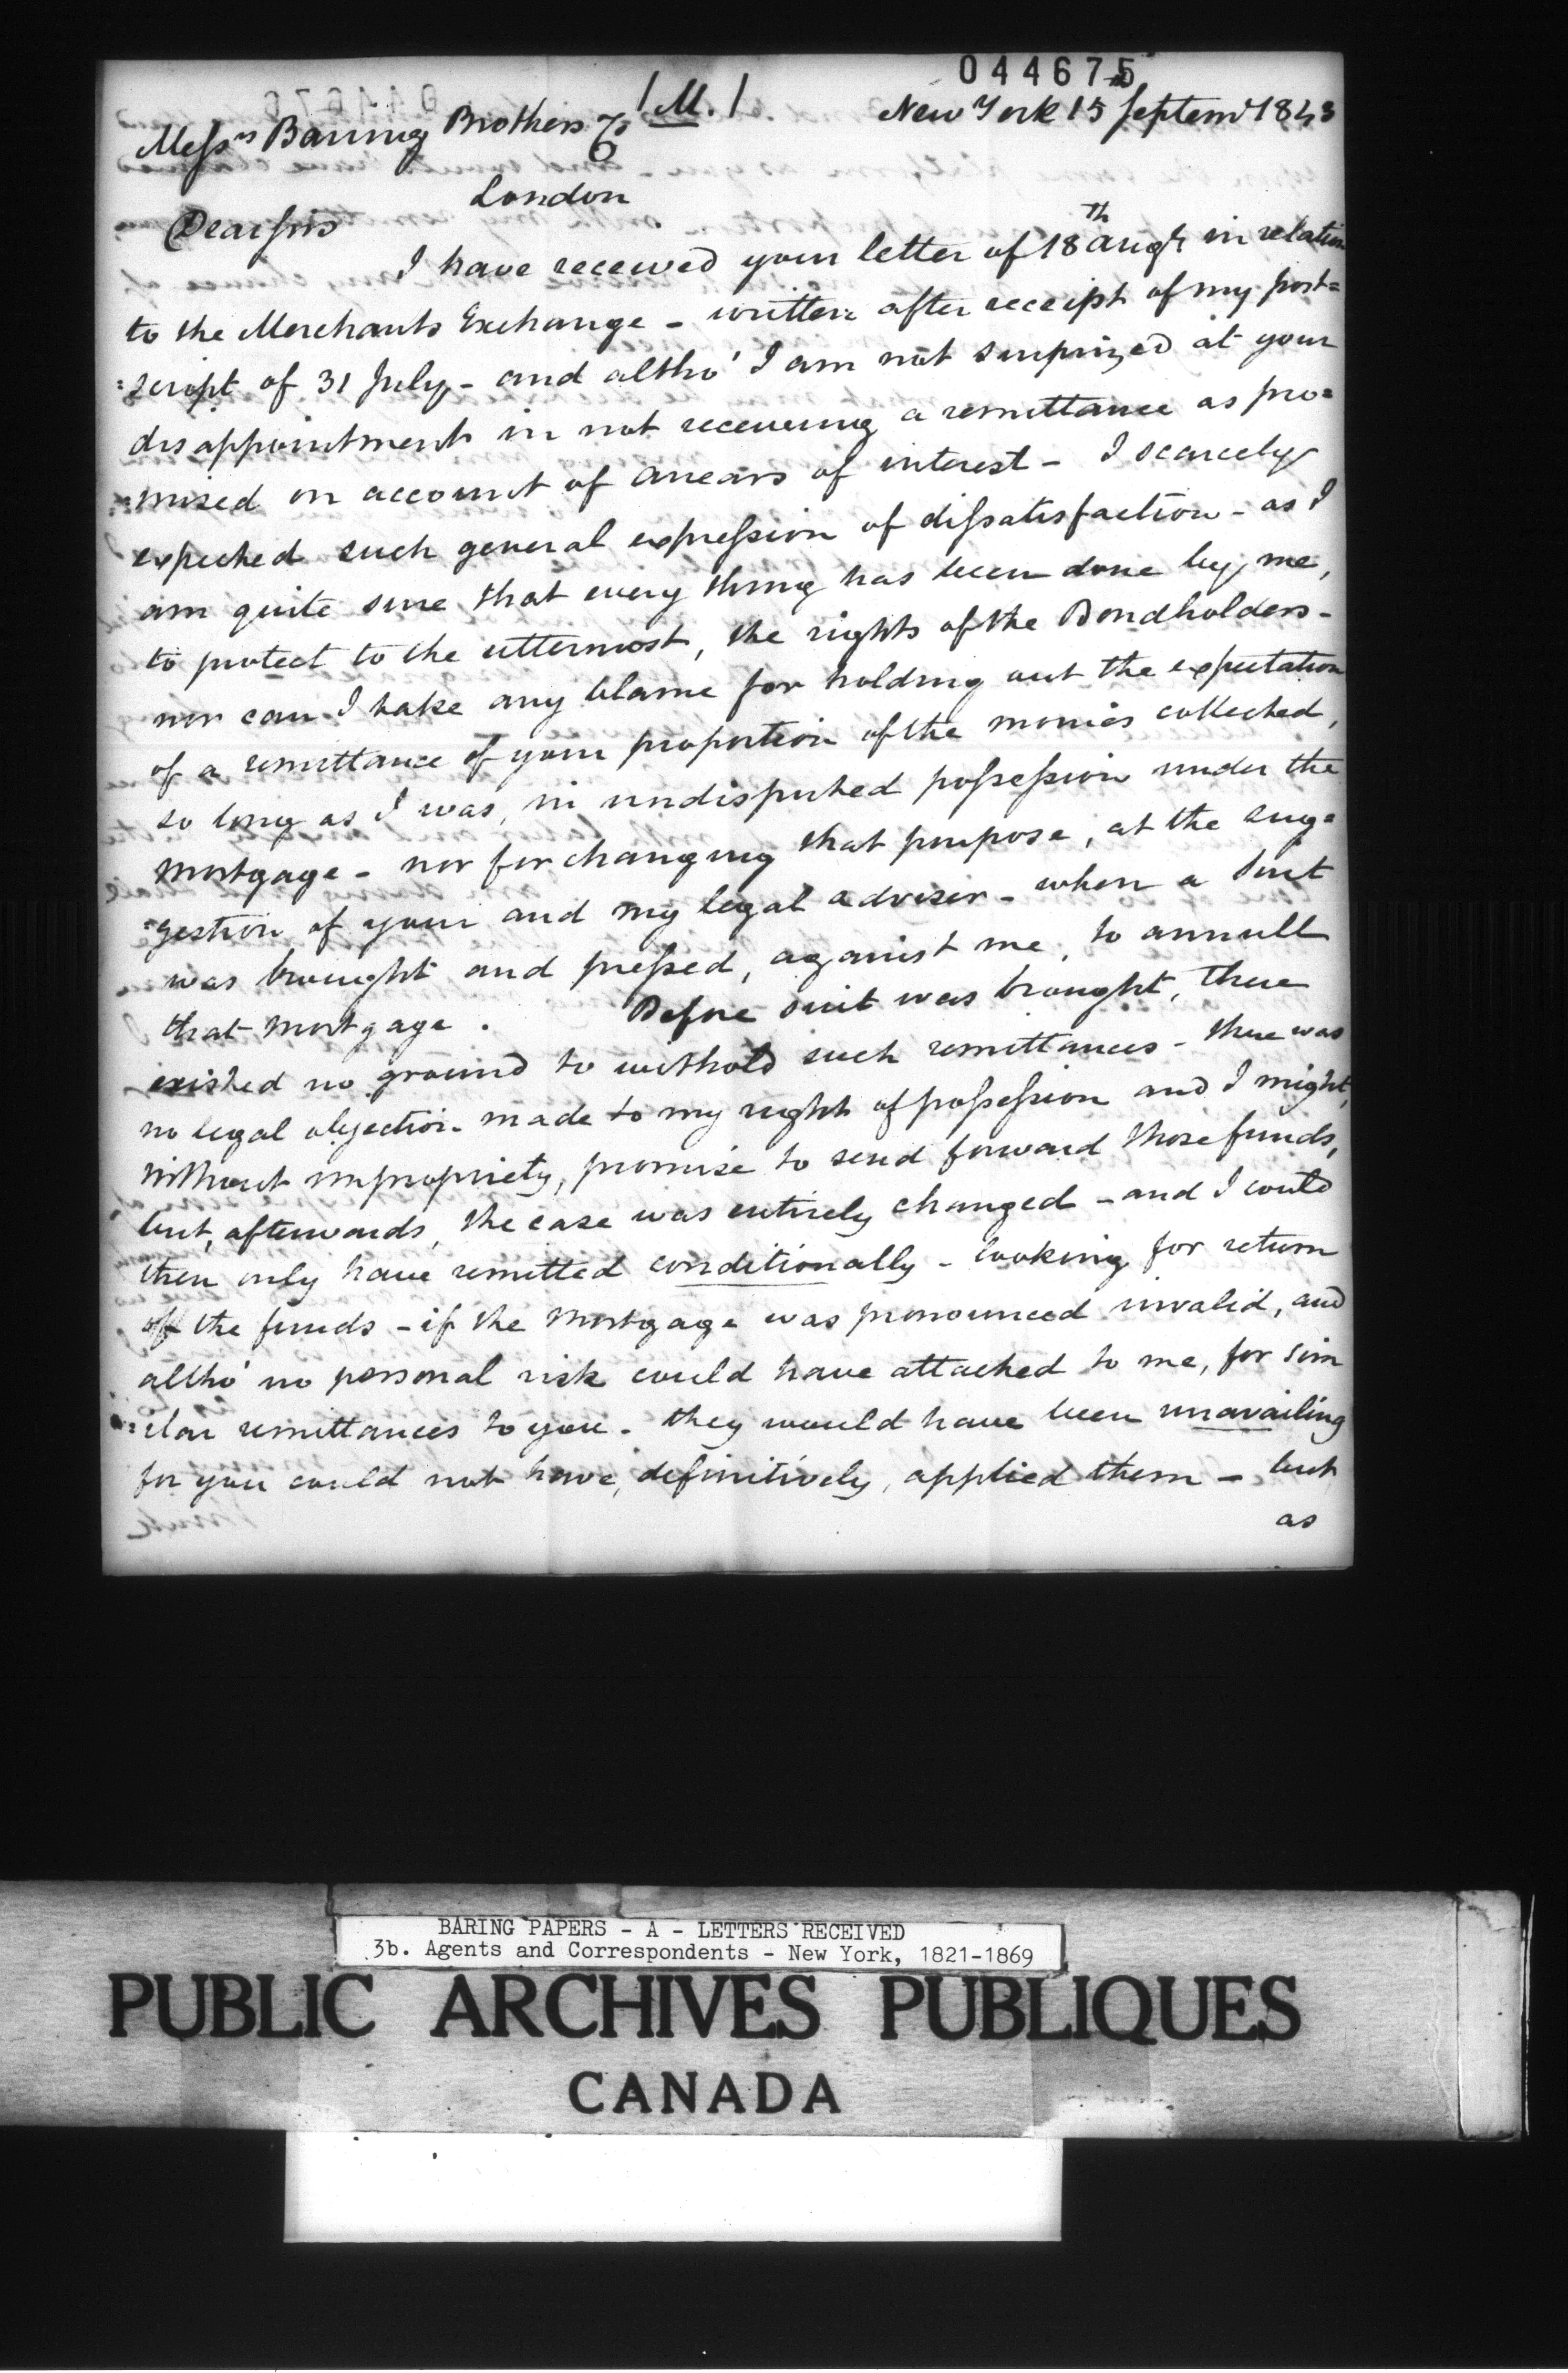 044675
/ M. / New York 15 Septemr 1843
Messrs Baring Brothers & Co
London
Dear Sirs
I have received your letter of 18th Augt in relation
to the Merchants Exchange - written after receipt of my post=
=script of 31 July - and altho' I am not surprized at your
disappointment in not receiving a remittance as pro=
=mised on account of arrears of interest - I scarcely
expected such general expression of dissatisfaction - as I
am quite sure that every thing has been done by me,
to protect to the uttermost, the rights of the Bondholders -
nor can I take any blame for holding out the expectation
of a remittance of your proportion of the monies collected,
so long as I was, in undisputed possession under the
mortgage - nor for changing that purpose, at the sug=
=gestion of your and my legal adviser - when a suit
was brought and pressed, against me, to annull
that mortgage. Before suit was brought, there
existed no ground to withold such remittances - there was
no legal objection made to my right of possession and I might,
without impropriety, promise to send forward those funds,
but, afterwards, the case was entirely changed - and I could
then only have remitted conditionally - looking for return
of the funds - if the Mortgage was pronounced invalid, and
altho' no personal risk could have attached to me, for sim
=ilar remittances to you - they would have been unavailing
for you could not have, definitively, applied them - but
as
BARING PAPERS - A - LETTERS RECEIVED
3b. Agents and Correspondents - New York, 1821-1869
PUBLIC ARCHIVES PUBLIQUES
CANADA